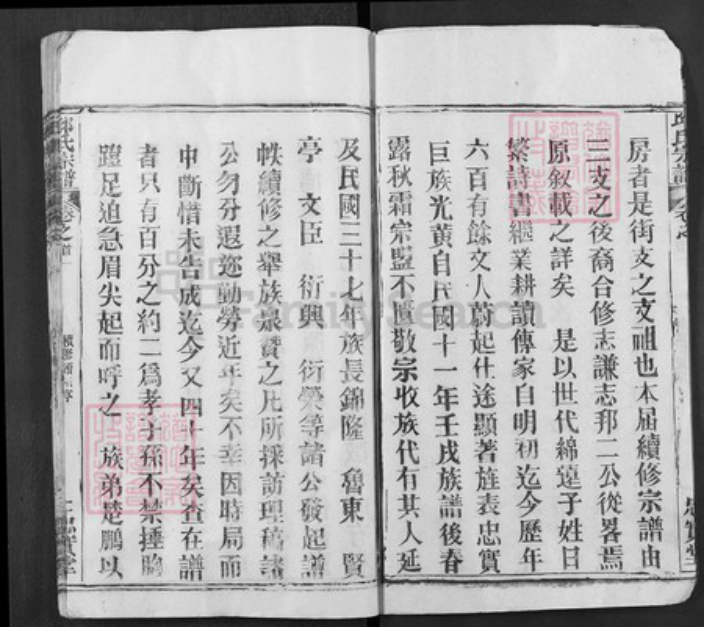 房者是街支之支祖也本届續修宗譜由
三支之後裔合修志謙志邦二公從畧焉
原叙載之詳矣 是以世代綿遠子姓日
繁詩書繼業耕讀傳家自明初迄今歷年
六百有餘文人蔚起仕途顯著旌表忠實
巨族光黄自民國十一年壬戌族譜後春
露秋霜宗盟不匱敬宗收族代有其人延
及民國三十七年族長錦隆 魯東 賢
亭 文臣 衍興 衍榮等諸公發起譜
帙續修之舉族衆贊之凡所採訪理稿諸
公勿分遐邇勤勞近年矣不幸因時局而
中斷惜未告成迄今又四十年矣查在譜
者只有百分之約二爲孝子孫不禁捶胸
蹬足迫急眉尖起而呼之 族弟楚鵬以
邱氏宗譜 卷之首
忠實堂
FamilySearch